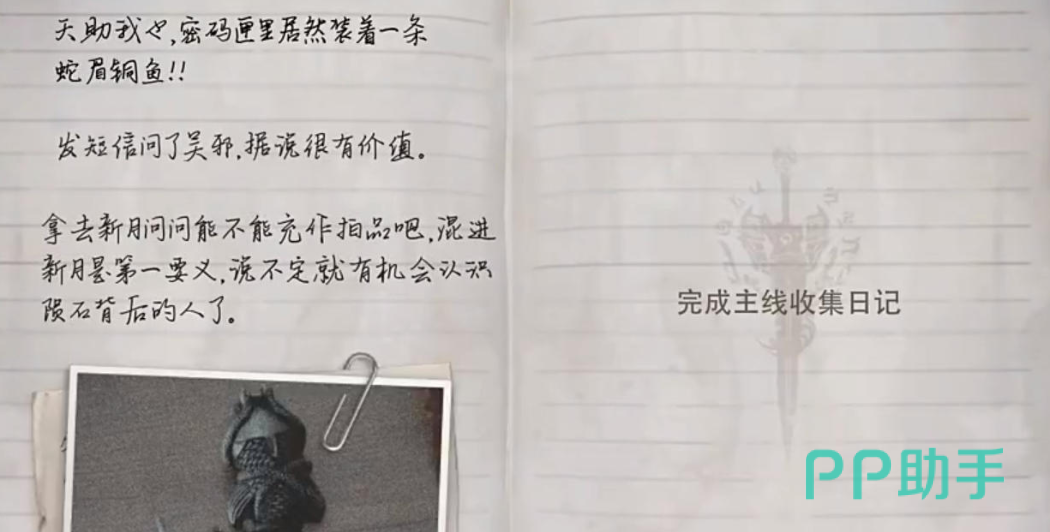 天助我也,密码匣里居然装着一条
蛇眉铜鱼!!
发短信问了吴邪,据说很有价值。
拿去新月问问能不能充作拍品吧,混进
新月是第一要义,说不定就有机会认识
陨石背后的人了。
完成主线收集日记
PP助手